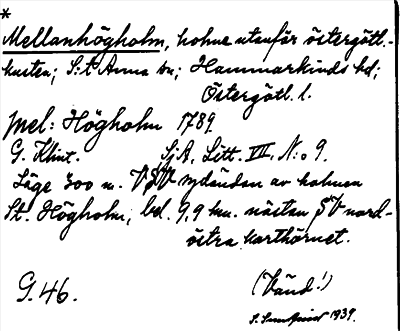 *
Mellanhögholm, holme utanför östergötl.-
kusten; S:t Anna sn; Hammarkinds hd;
Östergötl. l.
Mel: Högholm 1789
G. Klint. SjA, Litt. VII, N:o 9.
Läge 300 m. VSV sydändan av holmen
St. Högholm, bel. 9,9 km. nästan SV nord-
östra karthörnet.
G. 46. (Vänd!)
1939.